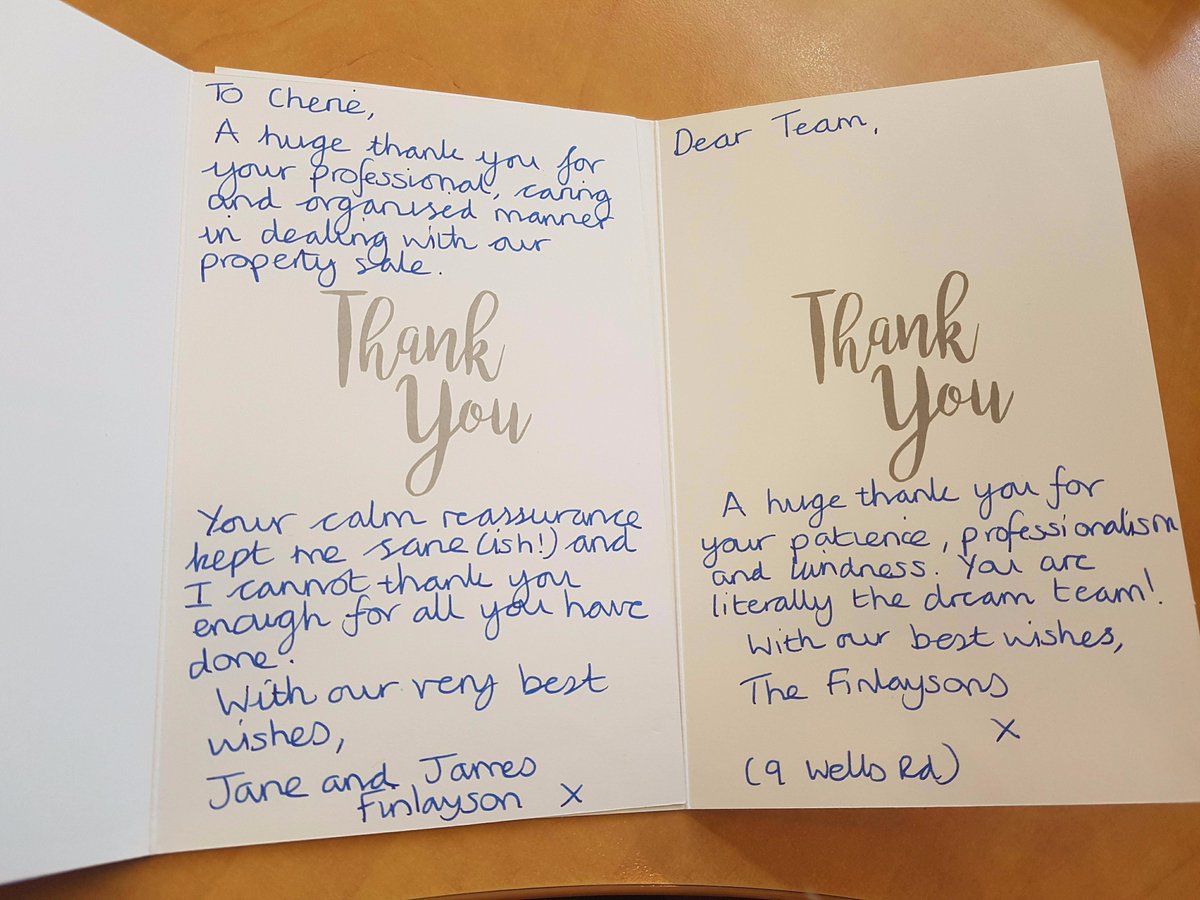 To Cherie,
A huge thank you for
your professional, caring
and organised manner
in dealing with our
property sale.
Thank
You
Your calm reassurance
kept me sane (ish!) and
I cannot thank you
enough for all you have
done.
With our very best
wishes,
Jane and James
Finlayson X
Dear Team,
Thank
You
A huge thank you for
your patience, professionalism
and kindness. You are
literally the dream team!
With our best wishes,
The Finlaysons
X
(9 Wells Rd)